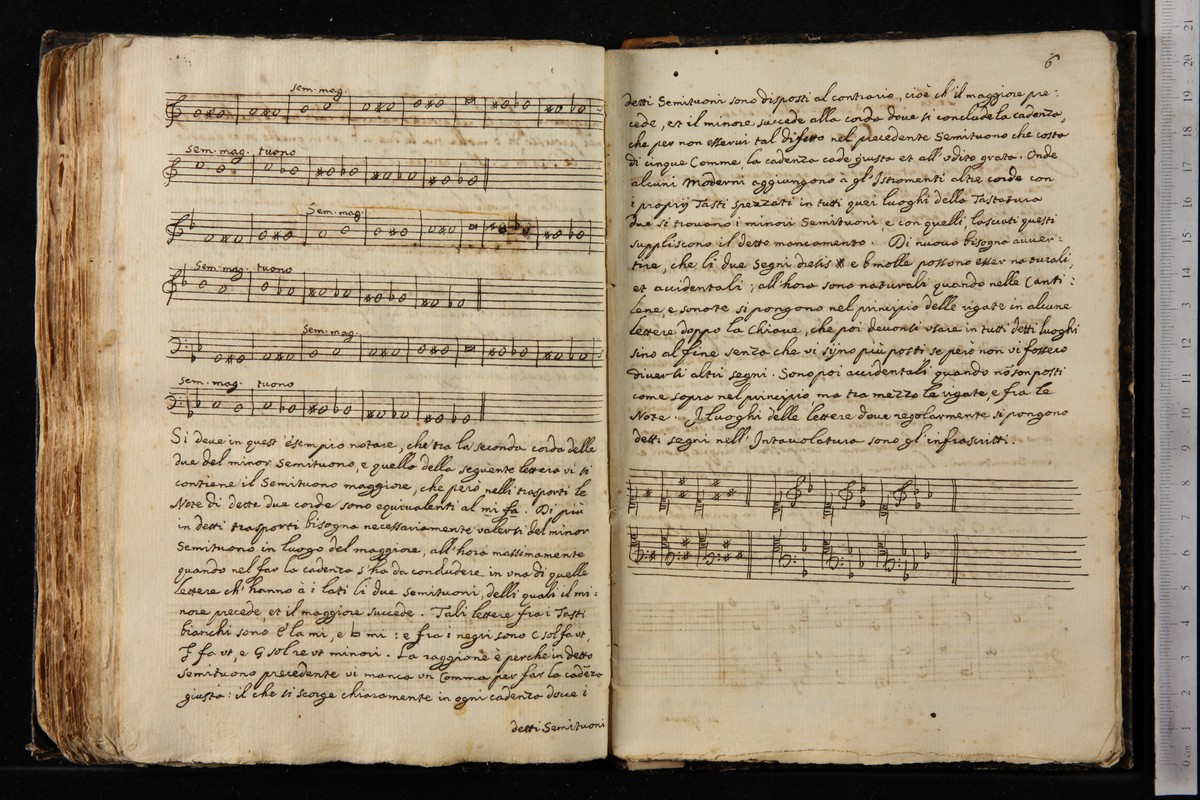 sem. mag.
sem. mag. tuono
Sem. mag.
Sem. mag. tuono
Sem. mag.
sem. mag. tuono
Si deue in quest' esempio notare, che tra la seconda corda delle
due del minor Semituono, e quella della seguente lettera vi si
contiene il Semituono maggiore, che però nelli trasporti le
Note di dette due corde sono equiualenti al mi fa. Di più
in detti trasporti bisogna necessariamente valersi del minor
Semituono in luogo del maggiore, all' hora massimamente
quando nel far la cadenza s' ha da concludere in vna di quelle
lettere ch' hanno à i lati li due Semituoni, delli quali il mi:
nore precede, et il maggiore succede. Tali lettere fra i Tasti
bianchi sono E la mi, e ♮ mi: e fra i negri sono C sol fa vt,
F fa vt, e G sol re vt minori. La raggione è perche in detto
semituono precedente vi manca vn Comma per far la cadēza
giusta: il che si scorge chiaramente in ogni cadenza doue i
detti Semituoni
6
detti Semituoni sono disposti al contrario, cioè ch' il maggiore pre:
cede, et il minore succede alla corda doue si conclude la cadenza,
che per non esserui tal difetto nel precedente Semituono che costa
di cinque Comme la cadenza cade giusta et all' vdito grata. Onde
alcuni Moderni aggiungono à gl' Istromenti altre corde con
i proprij Tasti spezzati in tutti quei luoghi della Tastatura
due si trouano i minori Semituoni, e con quelli, lasciati questi
suppliscono il detto mancamento. Di nuouo bisogna auuer:
tire, che li due Segni diesis ※ e b molle possono esser naturali,
et accidentali; all' hora sono naturali quando nelle Canti:
lene, e sonate si pongono nel principio delle rigate in alcune
lettere doppo la Chiaue, che poi deuonsi vsare in tutti detti luoghi
sino al fine senza che vi sijno più posti se però non vi fossero
diuersi altri segni. Sono poi accidentali quando nō son posti
come sopra nel principio, ma tra mezzo le rigate, e fra le
Note. I luoghi delle lettere doue regolarmente si pongono
detti segni nell' Intauolatura sono gl' infrascritti.